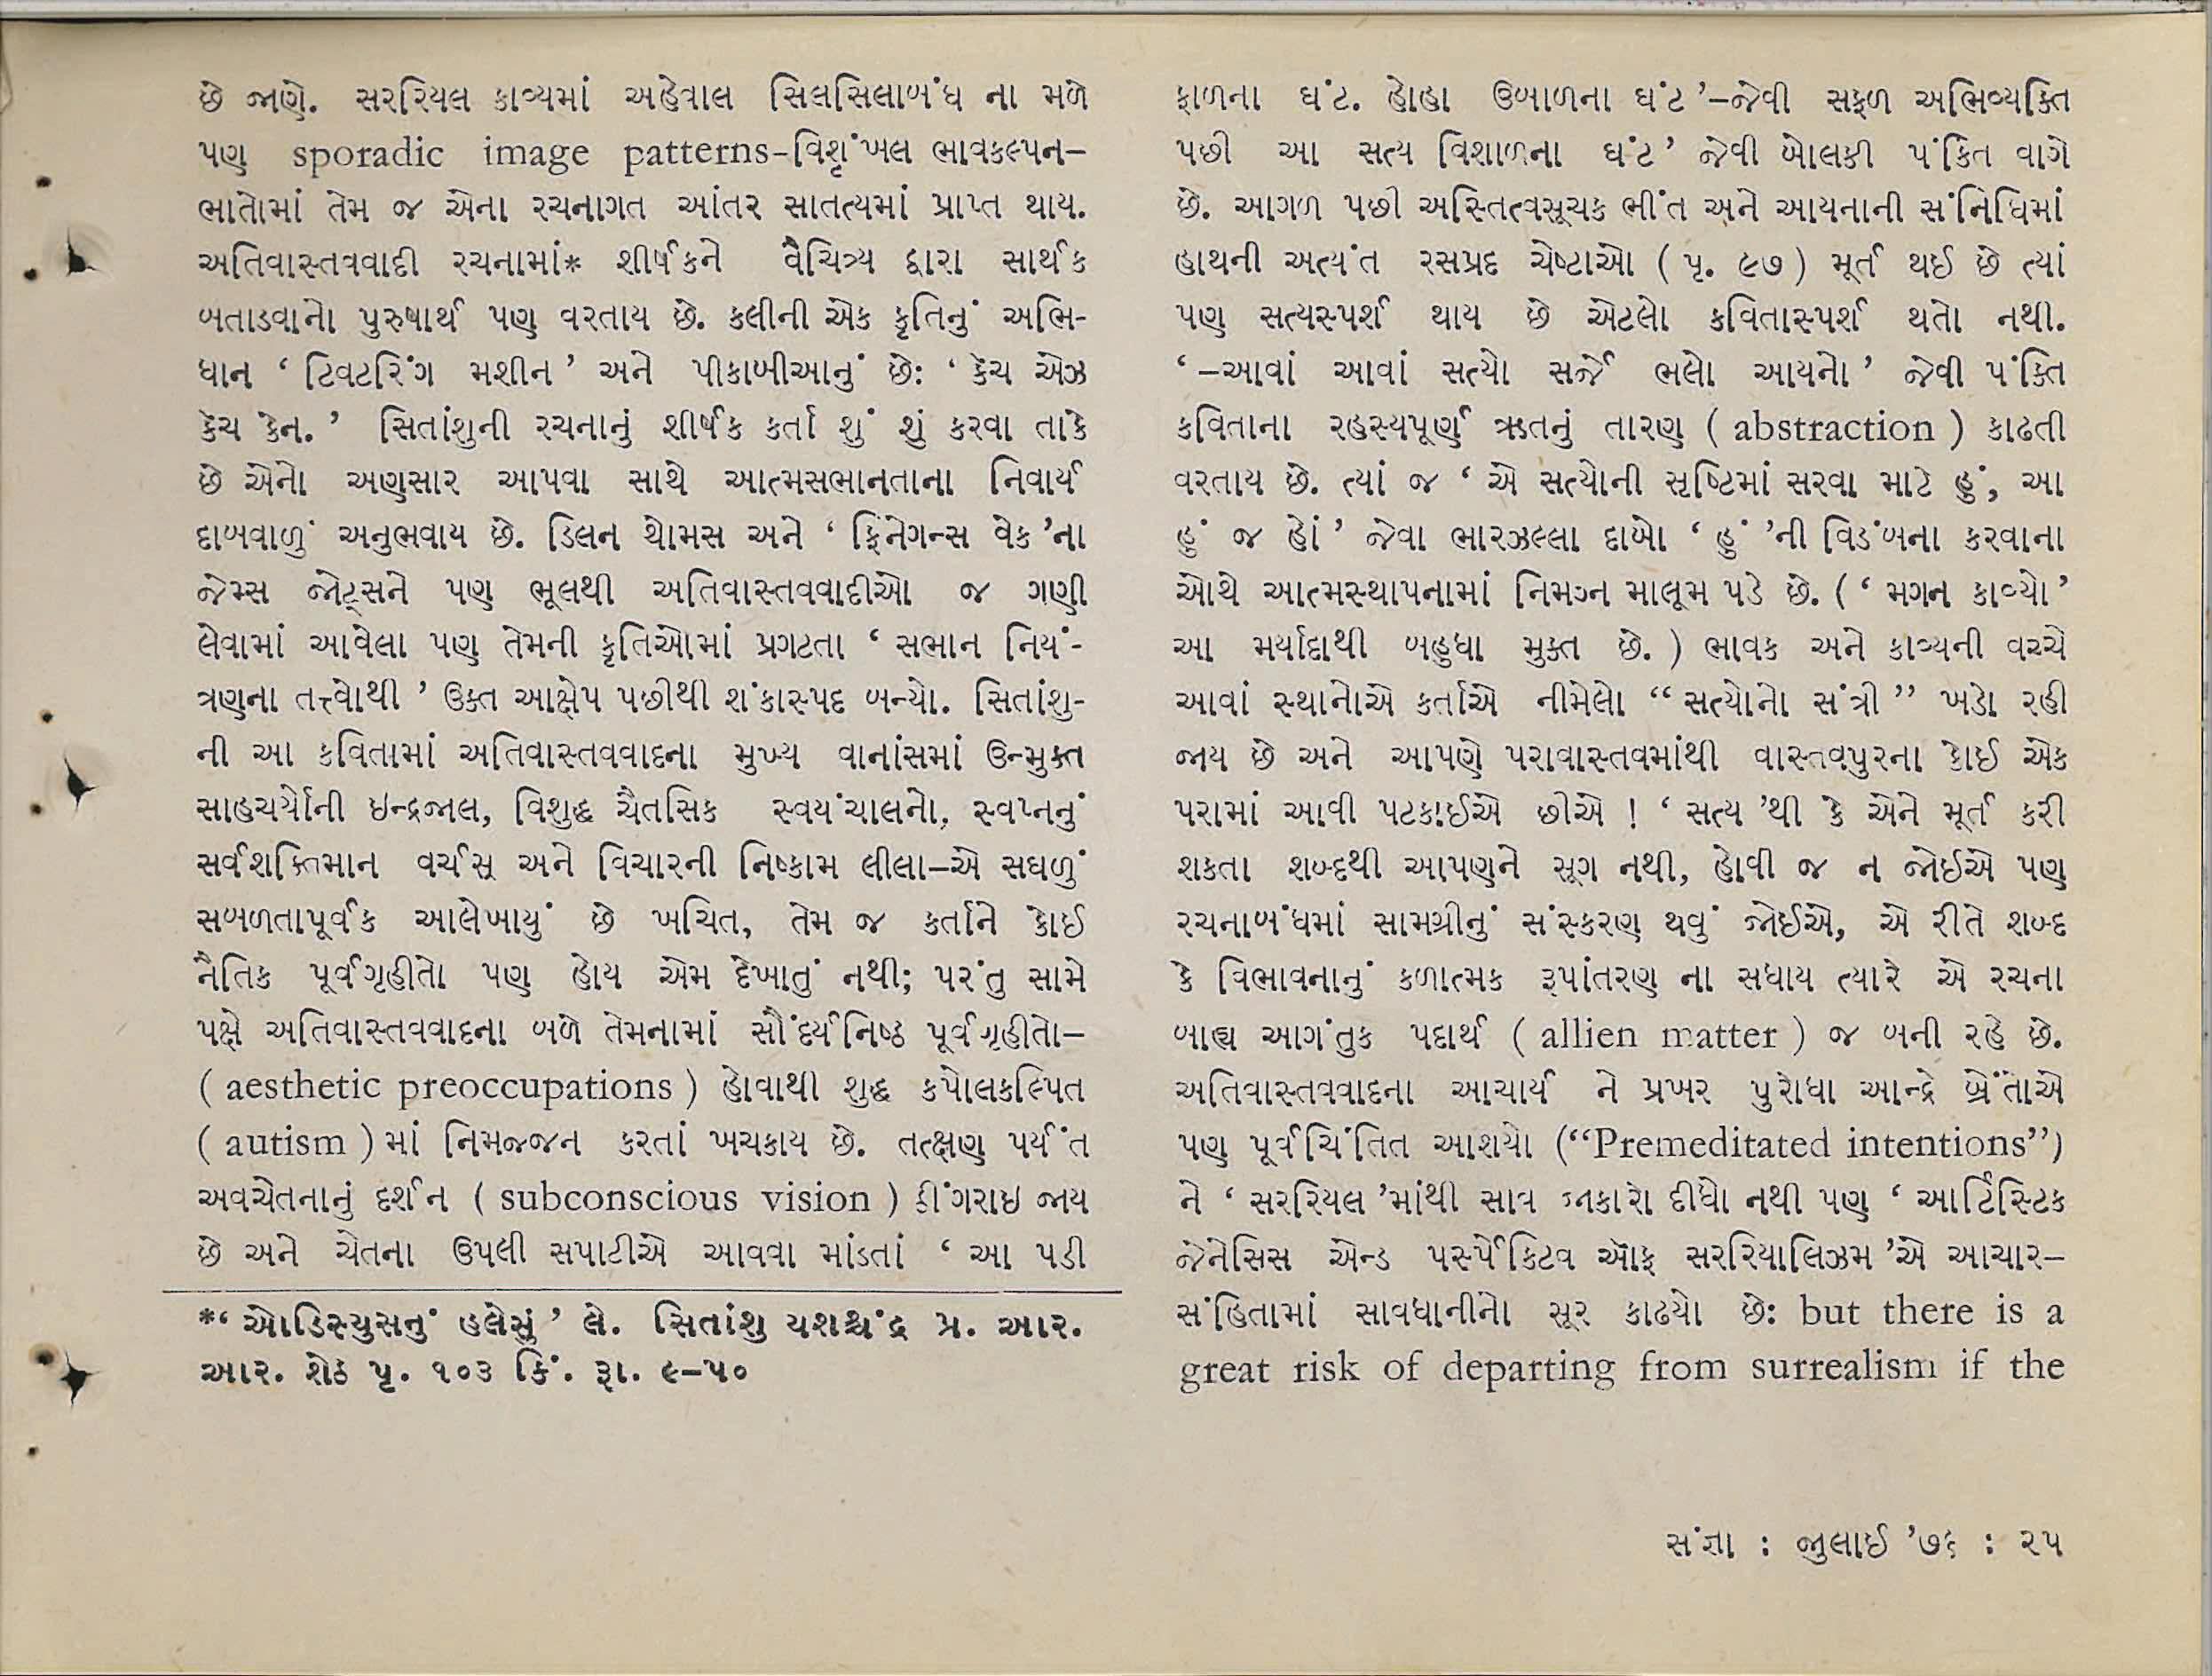 છે જાણે. સરરિયલ કાવ્યમાં અહેવાલ સિલસિલાબંધ ના મળે
પણ sporadic image patterns-વિશૃંખલ ભાવકલ્પન–
ભાતોમાં તેમ જ એના રચનાગત આંતર સાતત્યમાં પ્રાપ્ત થાય.
અતિવાસ્તવવાદી રચનામાં* શીર્ષકને વૈચિત્ર્ય દ્વારા સાર્થક
બતાડવાનો પુરુષાર્થ પણ વરતાય છે. કલીની એક કૃતિનું અભિ-
ધાન ‘ ટિવટરિંગ મશીન ’ અને પીકાબીઆનું છેઃ ‘ કેચ એઝ
કેચ કેન. ’ સિતાંશુની રચનાનું શીર્ષક કર્તા શું શું કરવા તાકે
છે એનો અણસાર આપવા સાથે આત્મસભાનતાના નિવાર્ય
દાબવાળું અનુભવાય છે. ડિલન થોમસ અને ‘ ફિનેગન્સ વેક ’ના
જેમ્સ જોટ્સને પણ ભૂલથી અતિવાસ્તવવાદીઓ જ ગણી
લેવામાં આવેલા પણ તેમની કૃતિઓમાં પ્રગટતા ‘ સભાન નિયં-
ત્રણના તત્ત્વોથી ’ ઉક્ત આક્ષેપ પછીથી શંકાસ્પદ બન્યો. સિતાંશુ-
ની આ કવિતામાં અતિવાસ્તવવાદના મુખ્ય વાનાંસમાં ઉન્મુક્ત
સાહચર્યોની ઇન્દ્રજાલ, વિશુદ્ધ ચૈતસિક સ્વયંચાલનો, સ્વપ્નનું
સર્વશક્તિમાન વર્ચસ્ અને વિચારની નિષ્કામ લીલા–એ સઘળું
સબળતાપૂર્વક આલેખાયું છે ખચિત, તેમ જ કર્તાને કોઈ
નૈતિક પૂર્વગૃહીતો પણ હોય એમ દેખાતું નથી; પરંતુ સામે
પક્ષે અતિવાસ્તવવાદના બળે તેમનામાં સૌંદર્યનિષ્ઠ પૂર્વગૃહીતો–
( aesthetic preoccupations ) હોવાથી શુદ્ધ કપોલકલ્પિત
( autism ) માં નિમજ્જન કરતાં ખચકાય છે. તત્ક્ષણ પર્યંત
અવચેતનાનું દર્શન ( subconscious vision ) ડીંગરાઇ જાય
છે અને ચેતના ઉપલી સપાટીએ આવવા માંડતાં ‘ આ પડી
*‘ ઓડિસ્યુસનું હલેસું ’ લે. સિતાંશુ યશશ્ચંદ્ર પ્ર. આર.
આર. શેઠ પૃ. ૧૦૩ કિં. રૂા. ૯–૫૦
ફાળના ઘંટ. હોહા ઉબાળના ઘંટ ’–જેવી સફળ અભિવ્યક્તિ
પછી આ સત્ય વિશાળના ઘંટ ’ જેવી બોલકી પંકિત વાગે
છે. આગળ પછી અસ્તિત્વસૂચક ભીંત અને આયનાની સંનિધિમાં
હાથની અત્યંત રસપ્રદ ચેષ્ટાઓ ( પૃ. ૯૭ ) મૂર્ત થઈ છે ત્યાં
પણ સત્યસ્પર્શ થાય છે એટલો કવિતાસ્પર્શ થતો નથી.
‘ –આવાં આવાં સત્યો સર્જે ભલો આયનો ’ જેવી પંક્તિ
કવિતાના રહસ્યપૂર્ણ ઋતનું તારણ ( abstraction ) કાઢતી
વરતાય છે. ત્યાં જ ‘ એ સત્યોની સૃષ્ટિમાં સરવા માટે હું, આ
હું જ હોં ’ જેવા ભારઝલ્લા દાખો ‘ હું ’ની વિડંબના કરવાના
ઓથે આત્મસ્થાપનામાં નિમગ્ન માલૂમ પડે છે. ( ‘ મગન કાવ્યો ’
આ મર્યાદાથી બહુધા મુક્ત છે. ) ભાવક અને કાવ્યની વચ્ચે
આવાં સ્થાનોએ કર્તાએ નીમેલો “ સત્યોનો સંત્રી ” ખડો રહી
જાય છે અને આપણે પરાવાસ્તવમાંથી વાસ્તવપુરના કોઈ એક
પરામાં આવી પટકાઈએ છીએ ! ‘ સત્ય ’થી કે એને મૂર્ત કરી
શકતા શબ્દથી આપણને સૂગ નથી, હોવી જ ન જોઈએ પણ
રચનાબંધમાં સામગ્રીનું સંસ્કરણ થવું જોઈએ, એ રીતે શબ્દ
કે વિભાવનાનું કળાત્મક રૂપાંતરણ ના સધાય ત્યારે એ રચના
બાહ્ય આગંતુક પદાર્થ ( allien matter ) જ બની રહે છે.
અતિવાસ્તવવાદના આચાર્ય ને પ્રખર પુરોધા આન્દ્રે બ્રેંતોએ
પણ પૂર્વચિંતિત આશયો (“Premeditated intentions”)
ને ‘ સરરિયલ ’માંથી સાવ જાકારો દીધો નથી પણ ‘ આર્ટિસ્ટિક
જેનેસિસ એન્ડ પર્સ્પેક્ટિવ ઑફ સરરિયાલિઝમ ’એ આચાર–
સંહિતામાં સાવધાનીનો સૂર કાઢયો છેઃ but there is a
great risk of departing from surrealism if the
સંજ્ઞા : જુલાઈ ’૭૬ : ૨૫